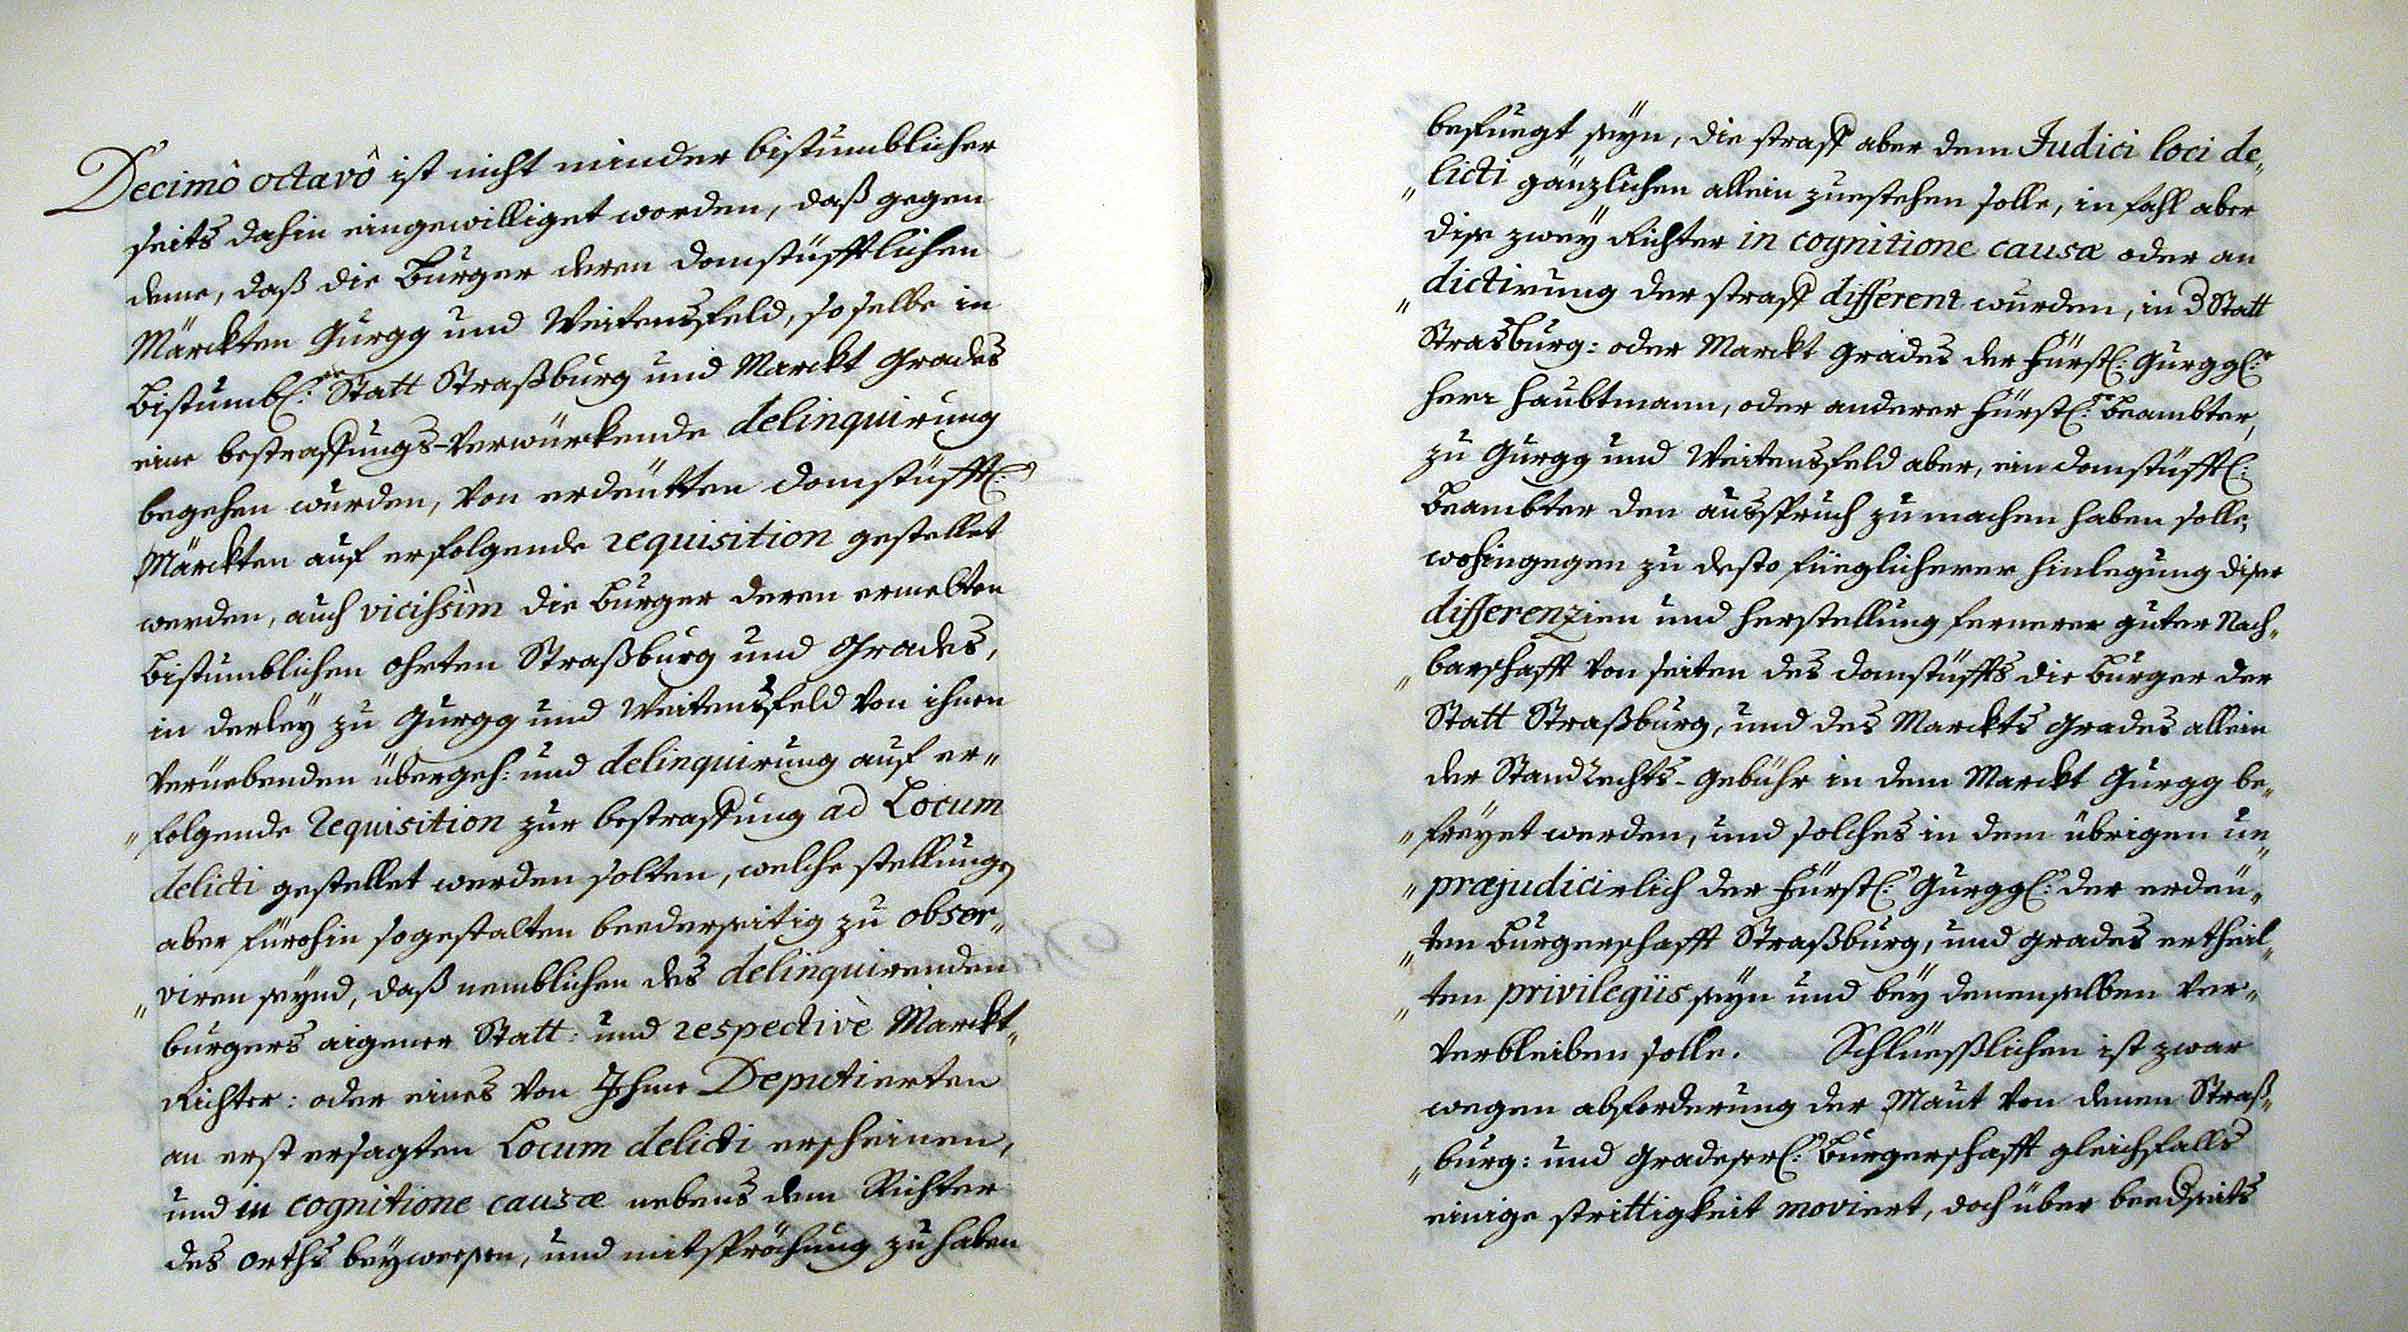 Decimô octavô ist nicht minder bistumblicher
seits dahin eingewilliget worden, daß gegen
deme, daß die Burger deren domstüfftlichen
Märckten Gurgg und Weitensfeld, so selbe in
Bistumbl:er Statt Straßburg und Marckt Grades
eine bestraffungs-verwürkende delinquirung
begehen wurden, von erdeutten domstüfftl:n
Märckten auf erfolgende requisition gestellet
werden, auch vicissim die Burger deren ermelten
Bistumblichen ohrten Straßburg und Grades,
in derley zu Gurgg und Weitensfeld von ihnen
verüebenden übergeh: und delinquirung auf er„
„folgende Requisition zur bestraffung ad Locum
delicti gestellet werden solten, welche stellung
aber fürohin sogestalten beederseitig zu obser„
„viren seynd, daß nemblichen des delinquirenden
burgers aigener Statt: und respectivè Marckt„
Richter: oder eines von Ihme Deputierten
an erst ersagten Locum delicti erscheinen,
und in cognitione causæ nebens dem Richter
des orths beywesen, und mitsprächung zu haben
befuegt seyn, die straff aber dem Iudici loci de„
„licti gänzlichen allein zuestehen solle, in fahl aber
dise zwey Richter in cognitione causæ oder an
„dictirung der straff different wurden, in d Statt
Strasburg: oder Marckt Grades der Fürstl: Gurggl:r
Herr Haubtmann, oder anderer Fürstl:r Beambter,
zu Gurgg und Weitensfeld aber, ein domstüfftl:
Beambter den ausspruch zu machen haben solle,
wohingegen zu desto füeglicherer hinlegung diser
differenzien und herstellung fernerer guter Nach„
„barschafft von seiten des domstüffts die Burger der
Statt Straßburg, und des Marckts Grades allein
der Standrechts-Gebühr in dem Marckt Gurgg be„
„freyet werden, und solches in dem übrigen un„
„præjudicirlich der Fürstl: Gurggl: der erdeu„
„ten Burgerschafft Straßburg, und Grades ertheil„
„ten privilegiis seyn und bey denenselben ver„
verbleiben solle. Schlüeßlichen ist zwar
wegen abforderung der Maut von denen Straß„
„burg: und Gradeserl: Burgerschafft gleichfalls
einige strittigkeit moviert, doch über beedseits